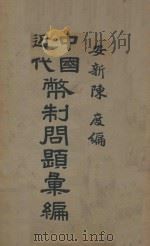 安新陳度編
中國
近代幣制問題彙編